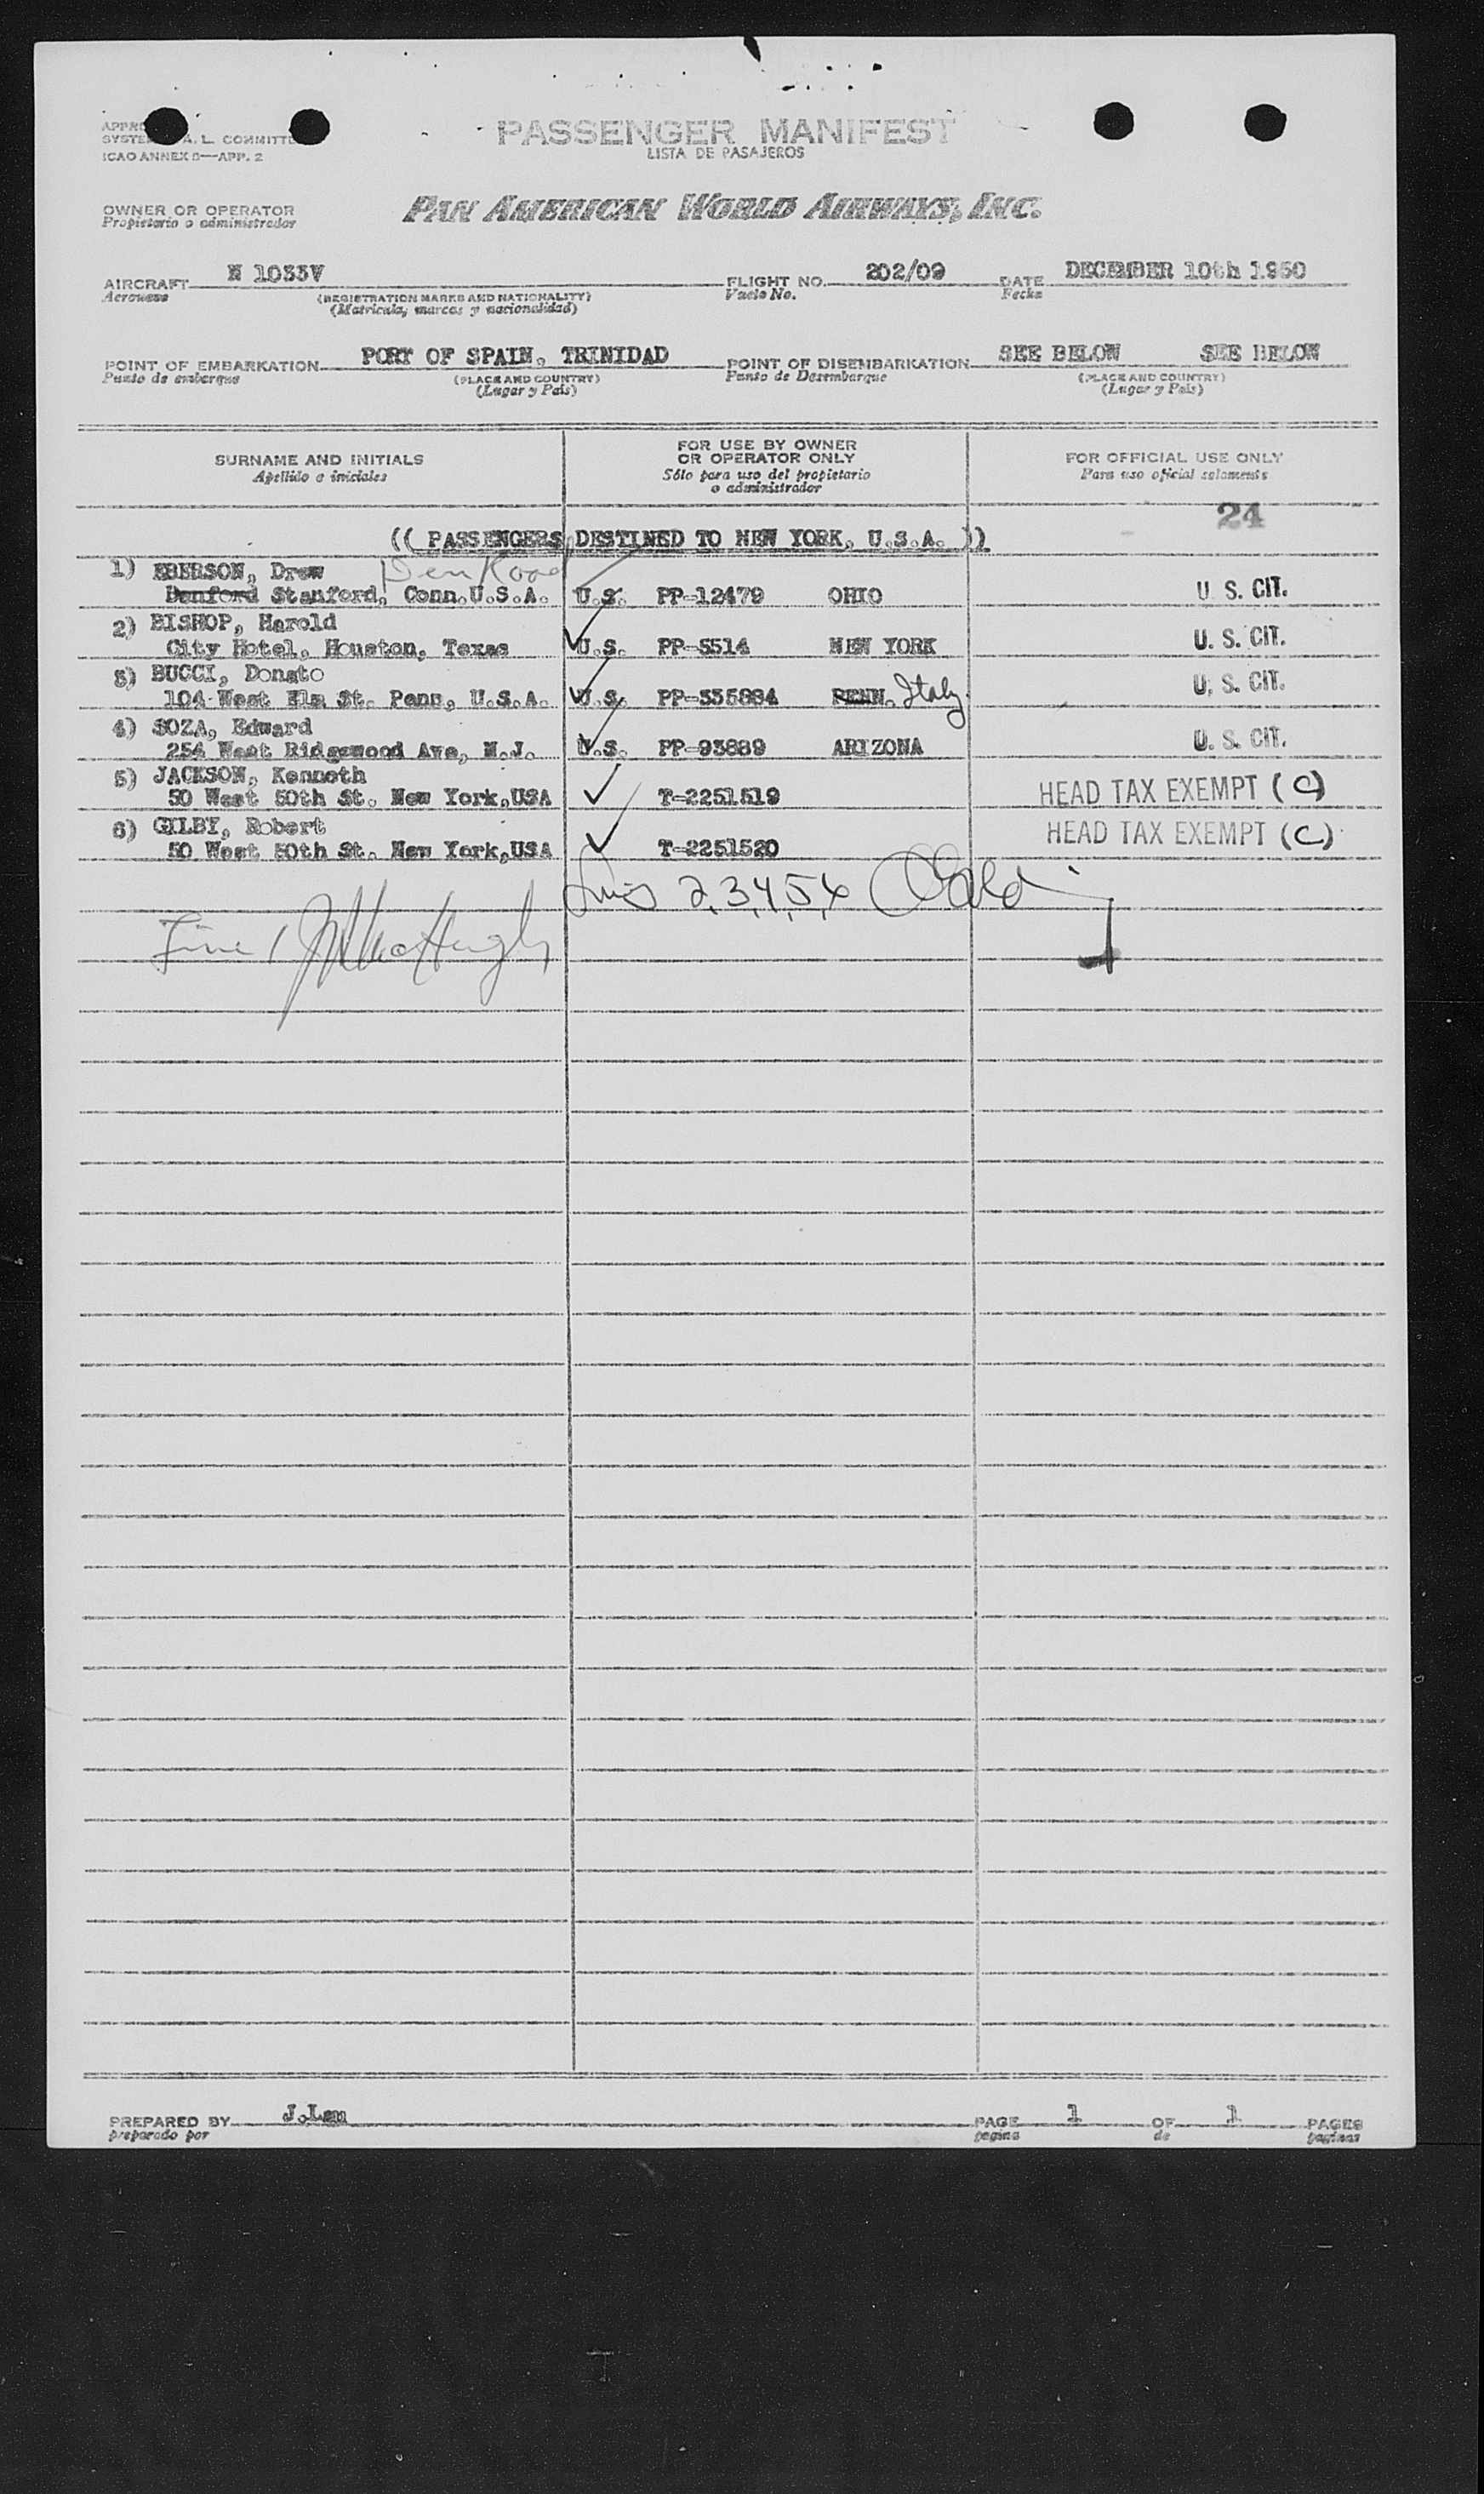 PASSENGER MANIFEST
LISTA DE PASAJEROS
SYSTEM A. L. COMMITTEE
ICAO ANNEX 9—APP. 2
OWNER OR OPERATOR
Propietario o administrador
PAN AMERICAN WORLD AIRWAYS, INC.
AIRCRAFT N 1033V FLIGHT NO. 202/09 DATE DECEMBER 10th 1950
Aeronave (REGISTRATION MARKS AND NATIONALITY) Vuelo No. Fecha
(Matricula, marcas y nacionalidad)
POINT OF EMBARKATION PORT OF SPAIN, TRINIDAD POINT OF DISEMBARKATION SEE BELOW SEE BELOW
Punto de embarque (PLACE AND COUNTRY) Punto de Desembarque (PLACE AND COUNTRY)
(Lugar y País) (Lugar y País)
SURNAME AND INITIALS FOR USE BY OWNER OR OPERATOR ONLY FOR OFFICIAL USE ONLY
Apellido e iniciales Sólo para uso del propietario o administrador Para uso oficial solamente
24
(( PASSENGERS DESTINED TO NEW YORK, U.S.A. ))
1) EBERSON, Drew
Stanford, Conn.U.S.A. U.S. PP-12479 OHIO U. S. CIT.
2) BISHOP, Harold
City Hotel, Houston, Texas U.S. PP-5514 NEW YORK U. S. CIT.
3) BUCCI, Donato
104 West Elm St. Penn, U.S.A. U.S. PP-335884 PENN. Italy. U. S. CIT.
4) SOZA, Edward
254 West Ridgewood Ave, N.J. U.S. PP-93889 ARIZONA U. S. CIT.
5) JACKSON, Kenneth
50 West 50th St. New York,USA T-2251519 HEAD TAX EXEMPT (C)
6) GILBY, Robert
50 West 50th St. New York,USA T-2251520 HEAD TAX EXEMPT (C)
2,3,4,5,6
Line 1
PREPARED BY J.Lau PAGE 1 OF 1 PAGES
preparado por pagina de paginas